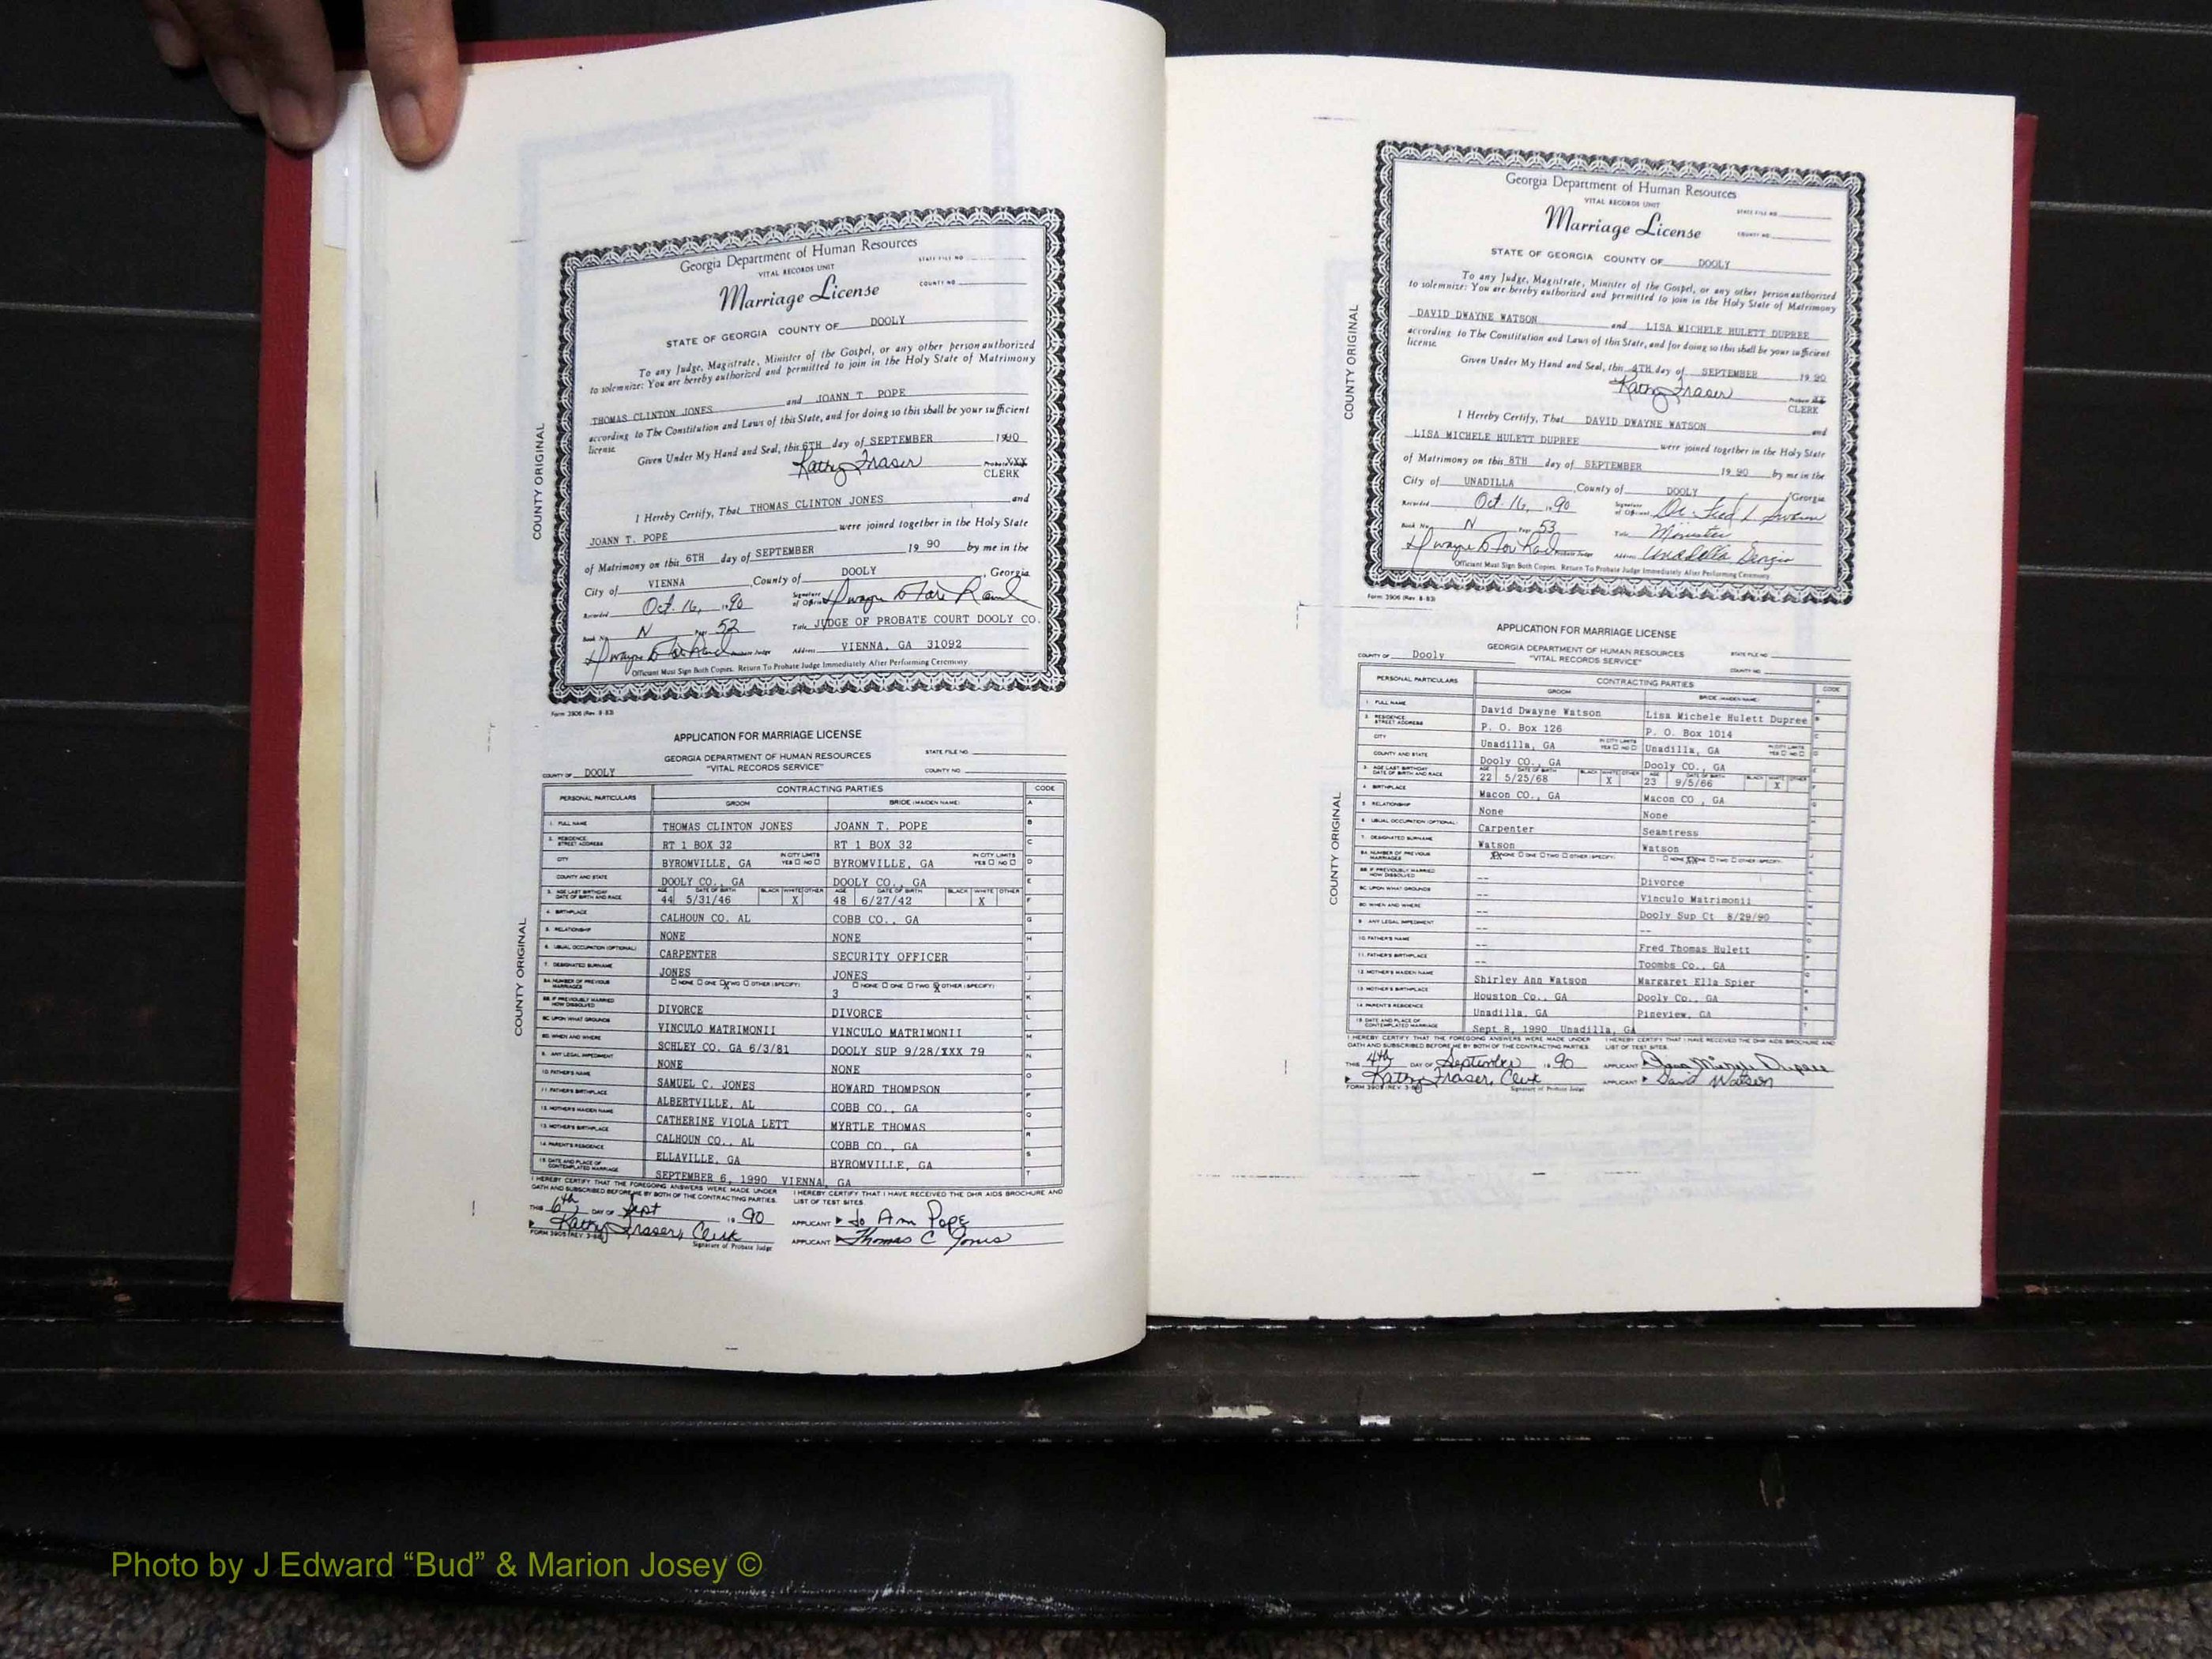 Georgia Department of Human Resources
VITAL RECORDS UNIT
STATE FILE NO
Marriage License
COUNTY NO
STATE OF GEORGIA COUNTY OF DOOLY
To any Judge, Magistrate, Minister of the Gospel, or any other person authorized
to solemnize: You are hereby authorized and permitted to join in the Holy State of Matrimony
THOMAS CLINTON JONES and JOANN T POPE
according to The Constitution and Laws of this State, and for doing so this shall be your sufficient
license.
Given Under My Hand and Seal, this 6TH day of SEPTEMBER 1990
Kathy Fraser
CLERK
I Hereby Certify, That THOMAS CLINTON JONES and
JOANN T. POPE were joined together in the Holy State
of Matrimony on this 6TH day of SEPTEMBER 19 90 by me in the
City of VIENNA , County of DOOLY , Georgia
Recorded Oct. 16, 1990 Signature of Official
Book No. N Page 52 Title JUDGE OF PROBATE COURT DOOLY CO.
Probate Judge Address VIENNA, GA 31092
Officiant Must Sign Both Copies. Return To Probate Judge Immediately After Performing Ceremony
Form 3906 (Rev. 8-83)
COUNTY ORIGINAL
APPLICATION FOR MARRIAGE LICENSE
GEORGIA DEPARTMENT OF HUMAN RESOURCES STATE FILE NO.
"VITAL RECORDS SERVICE"
COUNTY OF DOOLY COUNTY NO.
PERSONAL PARTICULARS CONTRACTING PARTIES CODE
GROOM BRIDE (MAIDEN NAME) A
1. FULL NAME THOMAS CLINTON JONES JOANN T. POPE B
2. RESIDENCE STREET ADDRESS RT 1 BOX 32 RT 1 BOX 32 C
CITY BYROMVILLE, GA IN CITY LIMITS YES NO BYROMVILLE, GA IN CITY LIMITS YES NO D
COUNTY AND STATE DOOLY CO., GA DOOLY CO., GA E
3. AGE LAST BIRTHDAY DATE OF BIRTH AND RACE AGE 44 DATE OF BIRTH 5/31/46 BLACK WHITE X OTHER AGE 48 DATE OF BIRTH 6/27/42 BLACK WHITE X OTHER F
4. BIRTHPLACE CALHOUN CO. AL COBB CO., GA G
5. RELATIONSHIP NONE NONE H
6. USUAL OCCUPATION (OPTIONAL) CARPENTER SECURITY OFFICER I
7. DESIGNATED SURNAME JONES JONES J
8A. NUMBER OF PREVIOUS MARRIAGES NONE ONE X TWO OTHER (SPECIFY) NONE ONE TWO X OTHER (SPECIFY) 3 K
8B. IF PREVIOUSLY MARRIED HOW DISSOLVED DIVORCE DIVORCE L
8C. UPON WHAT GROUNDS VINCULO MATRIMONII VINCULO MATRIMONII M
8D. WHEN AND WHERE SCHLEY CO. GA 6/3/81 DOOLY SUP 9/28/XXX 79 N
9. ANY LEGAL IMPEDIMENT NONE NONE
10. FATHER'S NAME SAMUEL C. JONES HOWARD THOMPSON O
11. FATHER'S BIRTHPLACE ALBERTVILLE, AL COBB CO., GA P
12. MOTHER'S MAIDEN NAME CATHERINE VIOLA LETT MYRTLE THOMAS Q
13. MOTHER'S BIRTHPLACE CALHOUN CO., AL COBB CO., GA R
14. PARENT'S RESIDENCE ELLAVILLE, GA BYROMVILLE, GA S
15. DATE AND PLACE OF CONTEMPLATED MARRIAGE SEPTEMBER 6, 1990 VIENNA, GA T
I HEREBY CERTIFY THAT THE FOREGOING ANSWERS WERE MADE UNDER I HEREBY CERTIFY THAT I HAVE RECEIVED THE DHR AIDS BROCHURE AND
OATH AND SUBSCRIBED BEFORE ME BY BOTH OF THE CONTRACTING PARTIES. LIST OF TEST SITES.
THIS 6th DAY OF Sept 1990 APPLICANT Jo Ann Pope
Kathy Fraser, Clerk APPLICANT Thomas C Jones
FORM 3905 (REV. 3-88) Signature of Probate Judge
COUNTY ORIGINAL
Georgia Department of Human Resources
VITAL RECORDS UNIT
STATE FILE NO
Marriage License
COUNTY NO.
STATE OF GEORGIA COUNTY OF DOOLY
To any Judge, Magistrate, Minister of the Gospel, or any other person authorized
to solemnize: You are hereby authorized and permitted to join in the Holy State of Matrimony
DAVID DWAYNE WATSON and LISA MICHELE HULETT DUPREE
according to The Constitution and Laws of this State, and for doing so this shall be your sufficient
license.
Given Under My Hand and Seal, this 4TH day of SEPTEMBER 19 90
Kathy Fraser
CLERK
I Hereby Certify, That DAVID DWAYNE WATSON and
LISA MICHELE HULETT DUPREE were joined together in the Holy State
of Matrimony on this 8TH day of SEPTEMBER 19 90 by me in the
City of UNADILLA , County of DOOLY , Georgia
Recorded Oct. 16, 1990 Signature of Official Dr. Fred L
Book No. N Page 53 Title Minister
Probate Judge Address Unadilla Georgia
Officiant Must Sign Both Copies. Return To Probate Judge Immediately After Performing Ceremony
Form 3906 (Rev. 8-83)
COUNTY ORIGINAL
APPLICATION FOR MARRIAGE LICENSE
GEORGIA DEPARTMENT OF HUMAN RESOURCES STATE FILE NO
COUNTY OF Dooly "VITAL RECORDS SERVICE" COUNTY NO.
PERSONAL PARTICULARS CONTRACTING PARTIES CODE
GROOM BRIDE (MAIDEN NAME)
1. FULL NAME David Dwayne Watson Lisa Michele Hulett Dupree
2. RESIDENCE STREET ADDRESS P. O. Box 126 P. O. Box 1014
CITY Unadilla, GA IN CITY LIMITS YES NO Unadilla, GA IN CITY LIMITS YES NO
COUNTY AND STATE Dooly CO., GA Dooly CO., GA
3. AGE LAST BIRTHDAY DATE OF BIRTH AND RACE AGE 22 DATE OF BIRTH 5/25/68 BLACK WHITE X OTHER AGE 23 DATE OF BIRTH 9/5/66 BLACK WHITE X OTHER
4. BIRTHPLACE Macon CO., GA Macon CO , GA
5. RELATIONSHIP None None
6. USUAL OCCUPATION (OPTIONAL) Carpenter Seamtress
7. DESIGNATED SURNAME Watson Watson
8A. NUMBER OF PREVIOUS MARRIAGES NONE ONE TWO OTHER (SPECIFY) NONE ONE TWO OTHER (SPECIFY)
8B. IF PREVIOUSLY MARRIED HOW DISSOLVED -- Divorce
8C. UPON WHAT GROUNDS -- Vinculo Matrimonii
8D. WHEN AND WHERE -- Dooly Sup Ct 8/29/90
9. ANY LEGAL IMPEDIMENT -- --
10. FATHER'S NAME -- Fred Thomas Hulett
11. FATHER'S BIRTHPLACE -- Toombs Co., GA
12. MOTHER'S MAIDEN NAME Shirley Ann Watson Margaret Ella Spier
13. MOTHER'S BIRTHPLACE Houston Co., GA Dooly Co., GA
14. PARENT'S RESIDENCE Unadilla, GA Pineview, GA
15. DATE AND PLACE OF CONTEMPLATED MARRIAGE Sept 8, 1990 Unadilla, GA
I HEREBY CERTIFY THAT THE FOREGOING ANSWERS WERE MADE UNDER I HEREBY CERTIFY THAT I HAVE RECEIVED THE DHR AIDS BROCHURE AND
OATH AND SUBSCRIBED BEFORE ME BY BOTH OF THE CONTRACTING PARTIES. LIST OF TEST SITES.
THIS 4th DAY OF September 1990 APPLICANT Lisa Michele Dupree
Kathy Fraser, Clerk APPLICANT David Watson
FORM 3905 (REV. 3-88) Signature of Probate Judge
COUNTY ORIGINAL
Photo by J Edward “Bud” & Marion Josey ©